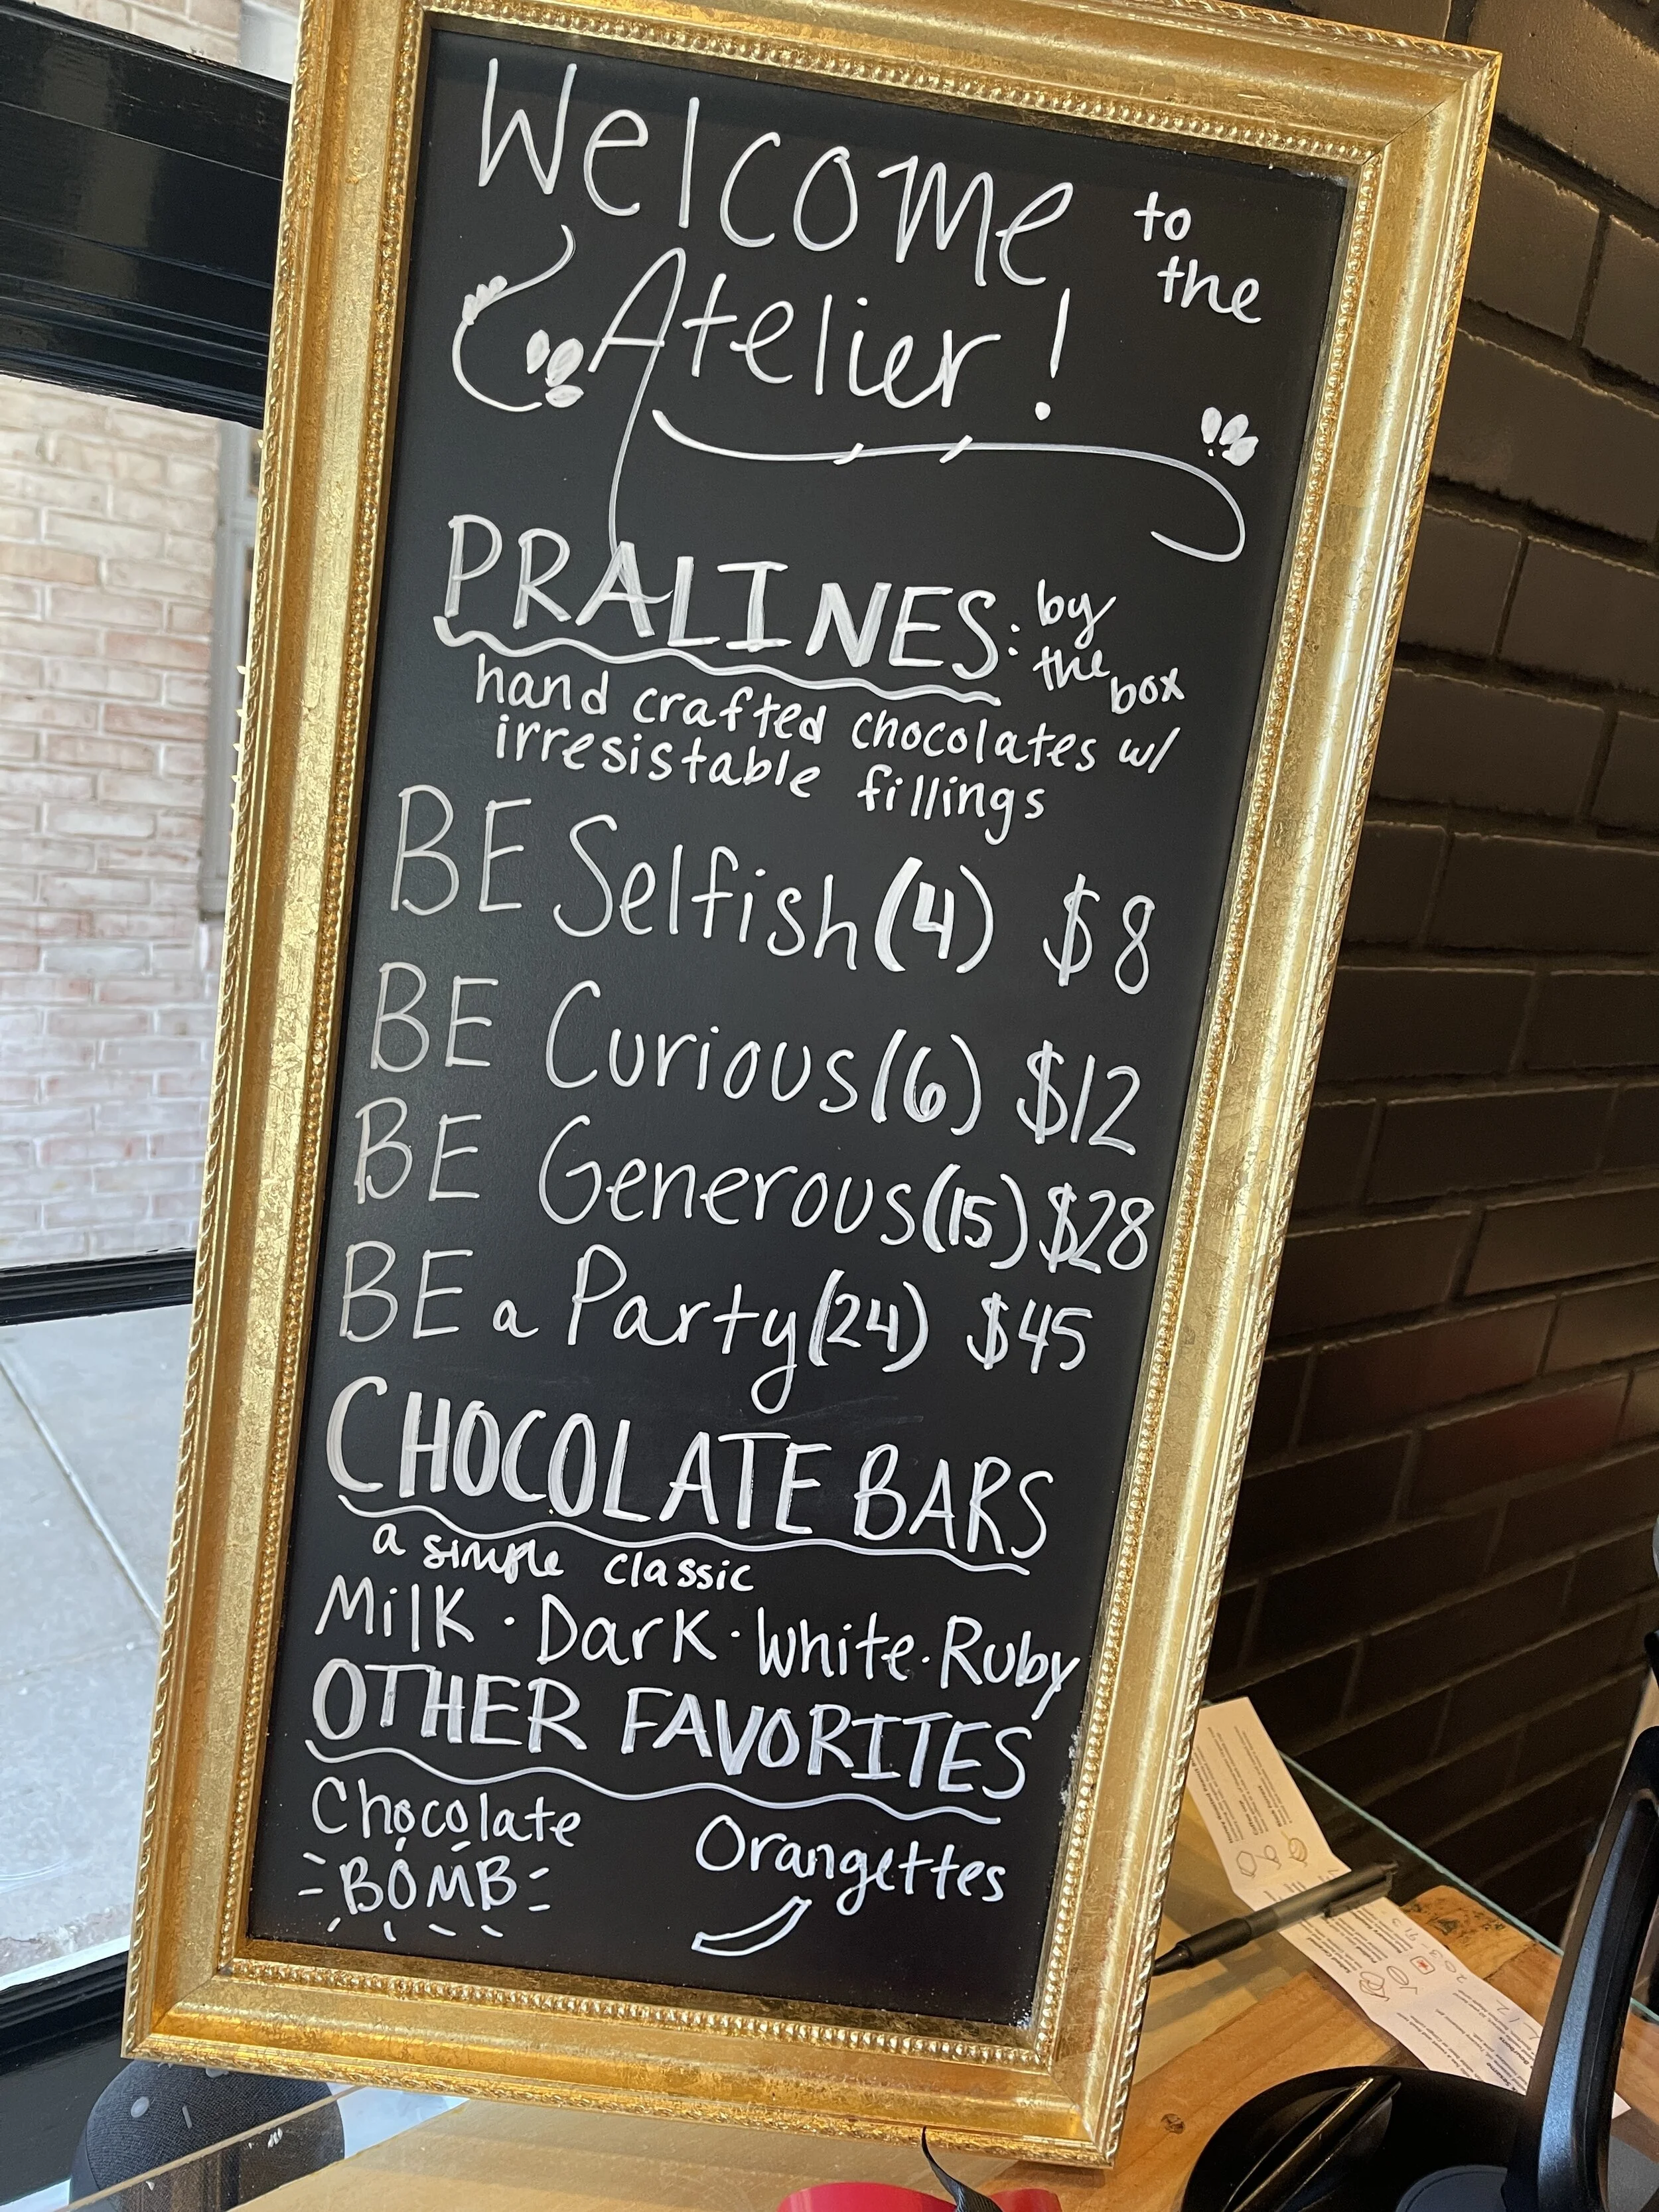 Welcome to the
Atelier!
PRALINES: by the box
hand crafted chocolates w/
irresistable fillings
BE Selfish (4) $8
BE Curious (6) $12
BE Generous (15) $28
BE a Party (24) $45
CHOCOLATE BARS
a simple classic
Milk · Dark · White · Ruby
OTHER FAVORITES
Chocolate
BOMB
Orangettes